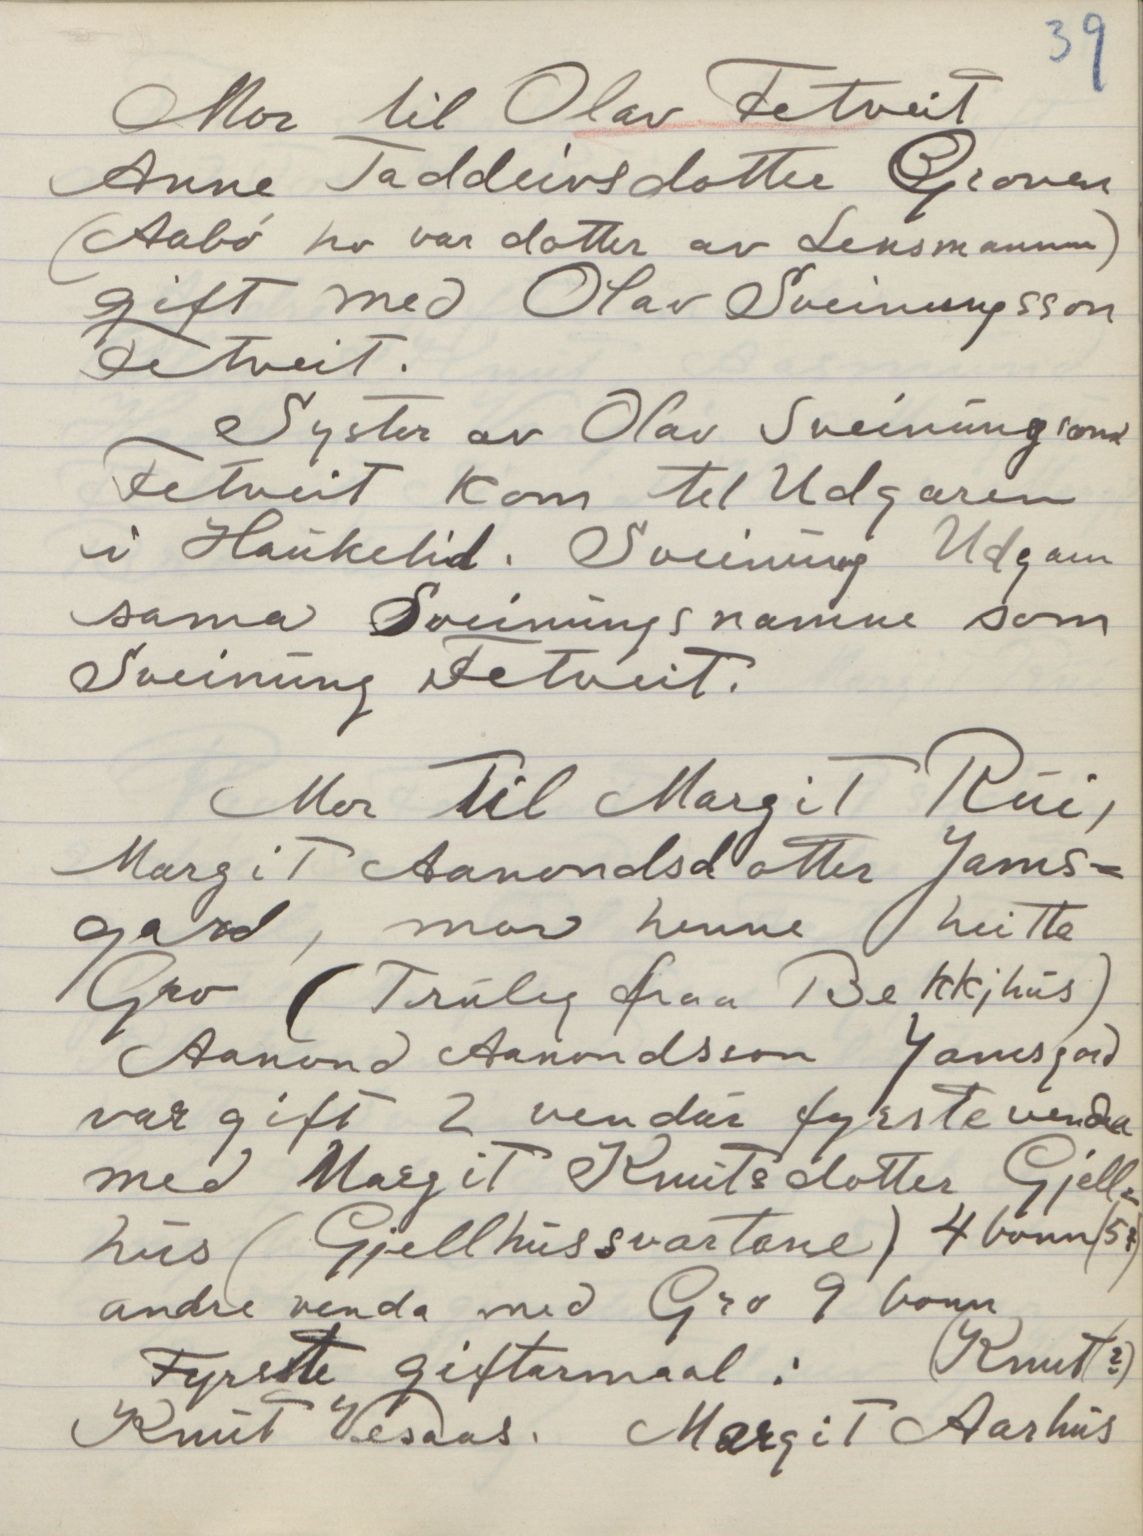 39
Mor til Olav Fetveit
Anne Taddeivsdotter Groven
(Aabö ho var dotter av Lensmannen)
gift med Olav Sveinungsson
Fetveit.
Syster av Olav Sveinungson
Fetveit kom tel Udgaren
i Haukelid. Sveinung Udgarn
sama Sveinungsnamne som
Sveinung Fetveit.
Mor til Margit Rui,
Margit Aanondsdotter Jams=
gard, mor henne heitte
Gro (Truleg fraa Bekkjhus)
Aanond Aanondsson Jamsgard
var gift 2 vendur fyrste venda
med Margit Knutsdotter Gjell=
hus (Gjellhussvartane) 4 bonn (5?)
andre venda med Gro 9 bonn
Fyrste giftarmaal : (Knut?)
Knut Vesaas. Margit Aarhus